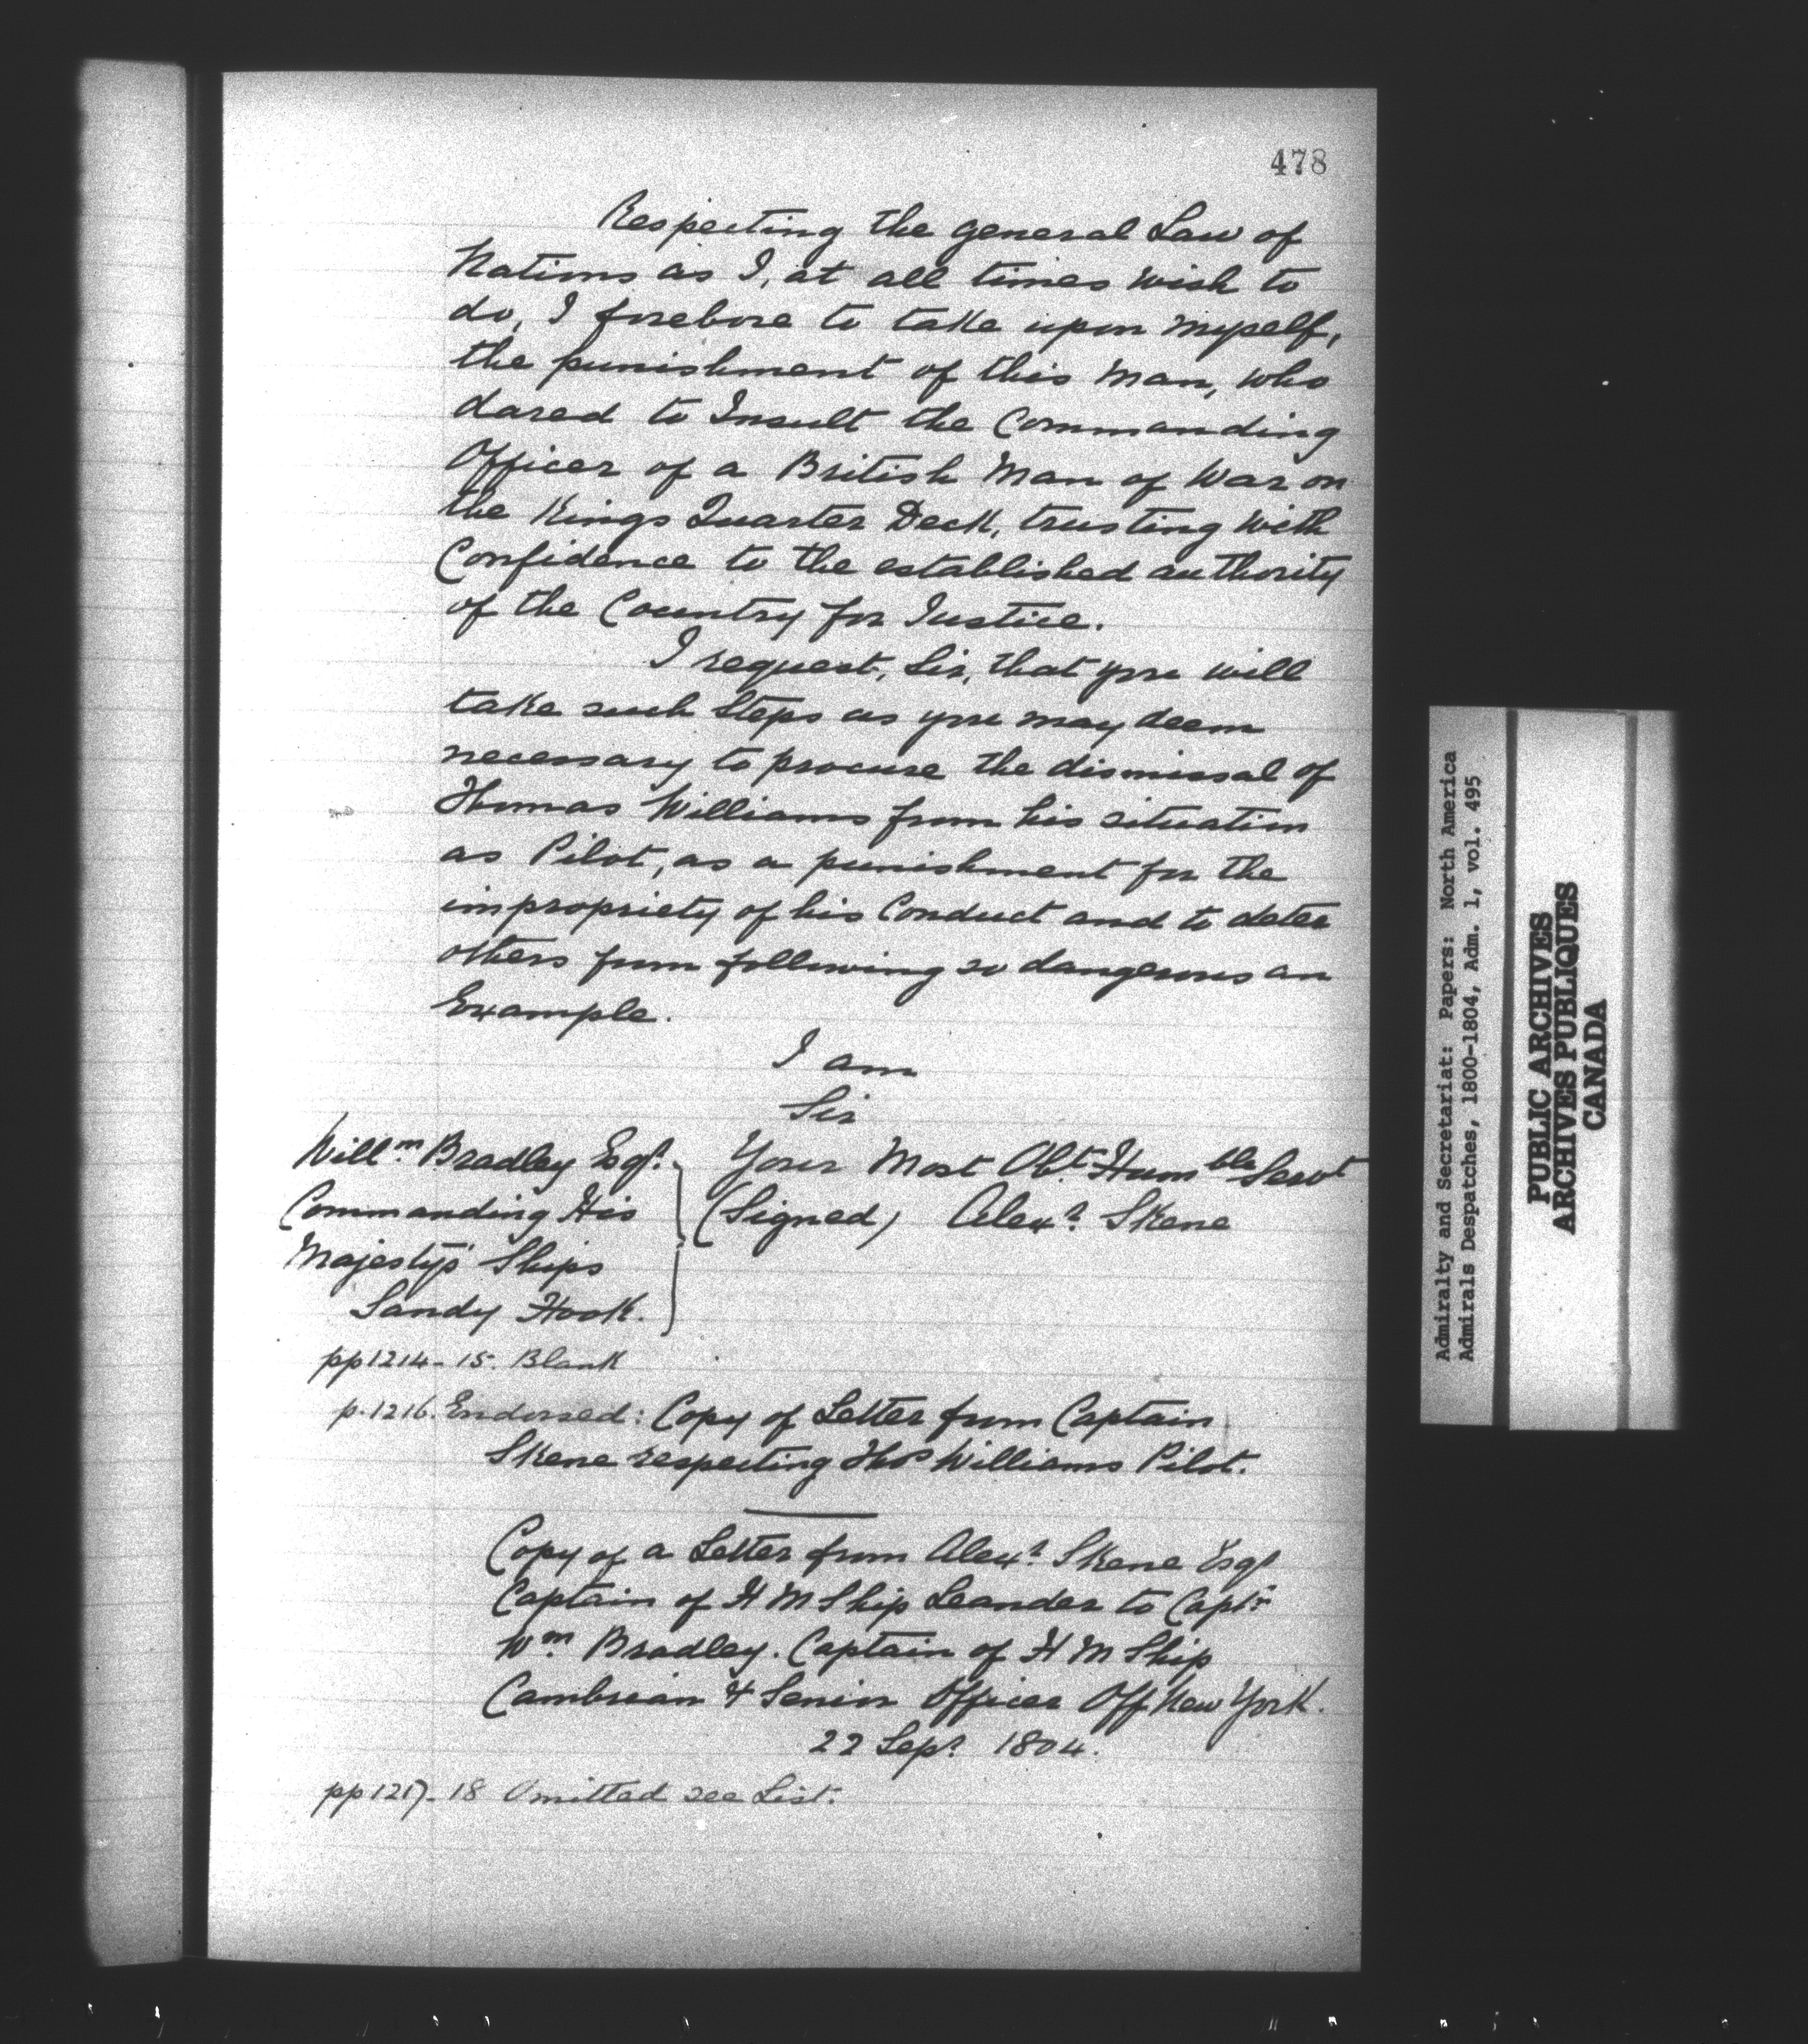 478
Respecting the general Law of
Nations as I, at all times wish to
do, I forebore to take upon myself,
the punishment of this Man, who
dared to Insult the Commanding
Officer of a British Man of War on
the Kings Quarter Deck, trusting with
Confidence to the established authority
of the Country for Justice.
I request, Sir, that you will
take such Steps as you may deem
necessary to procure the dismissal of
Thomas Williams from his situation
as Pilot, as a punishment for the
impropriety of his Conduct and to deter
others from following so dangerous an
Example.
I am
Sir
Your Most Obt. Humble Servt
(Signed) Alexr. Skene
Willm. Bradley Esqr.
Commanding His
Majesty's Ships
Sandy Hook.
pp 1214-15. Blank
p. 1216. Endorsed: Copy of Letter from Captain
Skene respecting Thos Williams Pilot.
Copy of a Letter from Alexr. Skene Esqr
Captain of H M Ship Leander to Captn.
Wm. Bradley. Captain of H M Ship
Cambrian & Senior Officer Off New York.
22 Sepr. 1804.
pp 1217-18 Omitted see List.
Admiralty and Secretariat: Papers: North America
Admirals Despatches, 1800-1804, Adm. 1, vol. 495
PUBLIC ARCHIVES
ARCHIVES PUBLIQUES
CANADA